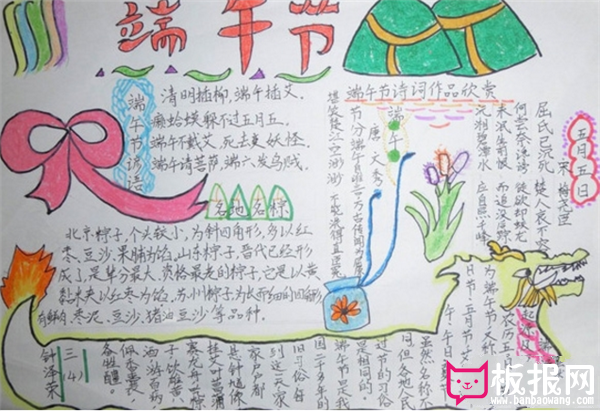 端午节
端午节谚语
清明插柳,端午插艾。
癞蛤蟆躲不过五月五。
端午不戴艾,死去变妖怪。
端午请菩萨,端六发乌贼。
各地名粽
北京粽子,个头较小,为斜四角形,多以红
枣、豆沙、果脯为馅。山东粽子,
黄粘米夹以红枣为馅。苏州粽子,为长而细的四角形
有鲜肉、枣泥、豆沙、猪油豆沙等品种。
端午节诗词作品欣赏
端午
唐·文秀
节分端午自谁言
万古传闻为屈原
堪笑楚江空渺渺
不能洗得直臣冤
五月五日
宋 梅尧臣
屈氏已沉死
楚人哀不容
何尝奈谗谤
徒欲却蛟龙
未泯生前恨
而追没后踪
沅湘碧潭水
应自照千峰
虽然名称不
同,但各地人民
过节的习俗
是相同的。
端午节是我
国二千多年
的旧习俗
到这一天家
家户户都
县钟馗像
挂艾叶菖蒲
赛龙舟,吃粽
子,饮雄黄
酒,游百病
佩香囊
各牲醴。
三(4)
钟泽荣
板报网
www.banbaowang.com